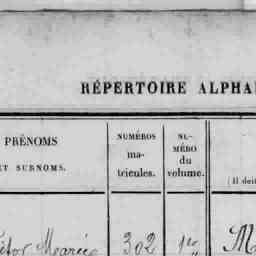 RÉPERTOIRE ALPHA
PRÉNOMS
ET SURNOMS.
NUMÉROS
ma-
tricules.
NU-
MÉRO
du
volume.
(Il doit
302 1er M